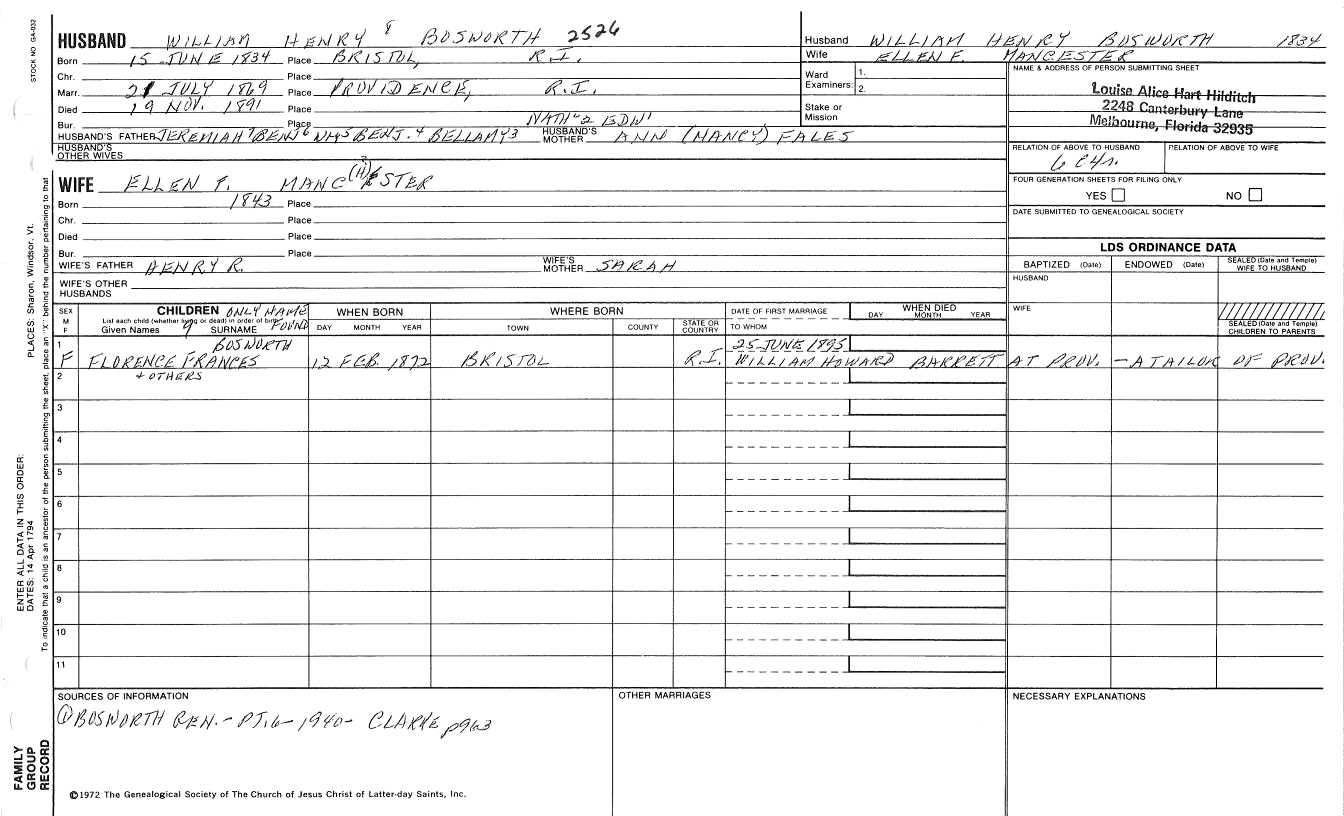 STOCK NO. GA-032
HUSBAND WILLIAM HENRY 8 BOSWORTH 2526
Born 15 JUNE 1834 Place BRISTOL, R.I.
Chr. Place
Marr. 21 JULY 1869 Place PROVIDENCE, R.I.
Died 19 NOV. 1891 Place
Bur. Place NATH'L 2 EDW 1
HUSBAND'S FATHER JEREMIAH 7 BENJ 6 NH 5 BENJ. 4 BELLAMY 3 HUSBAND'S MOTHER ANN (NANCY) FALES
HUSBAND'S OTHER WIVES
WIFE ELLEN F. MANC(H)ESTER
Born 1843 Place
Chr. Place
Died Place
Bur. Place
WIFE'S FATHER HENRY R. WIFE'S MOTHER SARAH
WIFE'S OTHER HUSBANDS
Husband WILLIAM HENRY BOSWORTH 1834
Wife ELLEN F. MANCESTER
Ward Examiners: 1.
2.
Stake or Mission
NAME & ADDRESS OF PERSON SUBMITTING SHEET
Louise Alice Hart Hilditch
2248 Canterbury Lane
Melbourne, Florida 32935
RELATION OF ABOVE TO HUSBAND RELATION OF ABOVE TO WIFE
6 C4r.
FOUR GENERATION SHEETS FOR FILING ONLY
YES NO
DATE SUBMITTED TO GENEALOGICAL SOCIETY
LDS ORDINANCE DATA
BAPTIZED (Date) ENDOWED (Date) SEALED (Date and Temple) WIFE TO HUSBAND
HUSBAND
WIFE
SEALED (Date and Temple) CHILDREN TO PARENTS
SEX M F
CHILDREN ONLY NAME FOUND
List each child (whether living or dead) in order of birth
Given Names 9 SURNAME
WHEN BORN DAY MONTH YEAR
WHERE BORN TOWN COUNTY STATE OR COUNTRY
DATE OF FIRST MARRIAGE TO WHOM
WHEN DIED DAY MONTH YEAR
1 BOSWORTH 25 JUNE 1895
F FLORENCE FRANCES 12 FEB. 1872 BRISTOL R.I. WILLIAM HOWARD BARRETT AT PROV. - A TAILOR OF PROV.
2 + OTHERS
3
4
5
6
7
8
9
10
11
SOURCES OF INFORMATION
① BOSWORTH GEN. - PT. 6 - 1940 - CLARKE p963
OTHER MARRIAGES
NECESSARY EXPLANATIONS
©1972 The Genealogical Society of The Church of Jesus Christ of Latter-day Saints, Inc.
FAMILY GROUP RECORD
ENTER ALL DATA IN THIS ORDER:
DATES: 14 Apr 1794
PLACES: Sharon, Windsor, Vt.
To indicate that a child is an ancestor of the person submitting the sheet, place an "X" behind the number pertaining to that